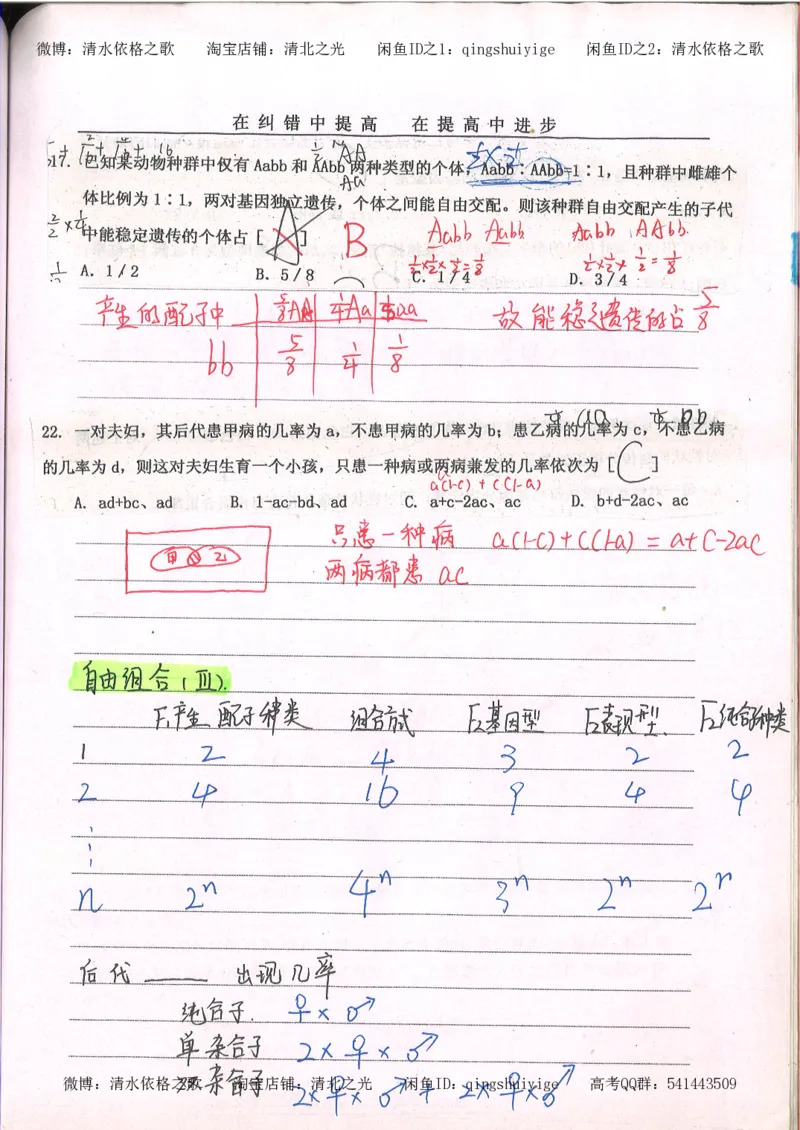 微博：清水依格之歌 淘宝店铺：清北之光 闲鱼ID之1：qingshuiyige 闲鱼ID之2：清水依格之歌
在纠错中提高 在提高中进步
17. 已知某动物种群中仅有 Aabb 和 AAbb 两种类型的个体，Aabb：AAbb=1：1，且种群中雌雄个
体比例为 1：1，两对基因独立遗传，个体之间能自由交配。则该种群自由交配产生的子代
中能稳定遗传的个体占 [ ] B
Aabb Aabb Aabb AAbb
A. 1/2 B. 5/8 C. 1/4 D. 3/4
产生的配子中 AA 1/4Aa aa 故能稳定遗传的占 5/8
bb 5/8 1/4 1/8
22. 一对夫妇，其后代患甲病的几率为 a，不患甲病的几率为 b；患乙病的几率为 c，不患乙病
的几率为 d，则这对夫妇生育一个小孩，只患一种病或两病兼发的几率依次为 [ C ]
a(1-c) + c(1-a)
A. ad+bc、ad B. 1-ac-bd、ad C. a+c-2ac、ac D. b+d-2ac、ac
只患一种病 a(1-c)+c(1-a) = a+c-2ac
甲 乙
两病都患 ac
自由组合(Ⅲ).
F₁产生配子种类 组合方式 F₂基因型 F₂表现型 F₂纯合子种类
1 2 4 3 2 2
2 4 16 9 4 4
n 2ⁿ 4ⁿ 3ⁿ 2ⁿ 2ⁿ
后代 ____ 出现几率
纯合子. ♀×♂
单杂合子 2×♀×♂
双杂合子 2×♀×♂ + 2×♀×♂
微博：清水依格之歌 淘宝店铺：清北之光 闲鱼ID：qingshuiyige 高考QQ群：541443509